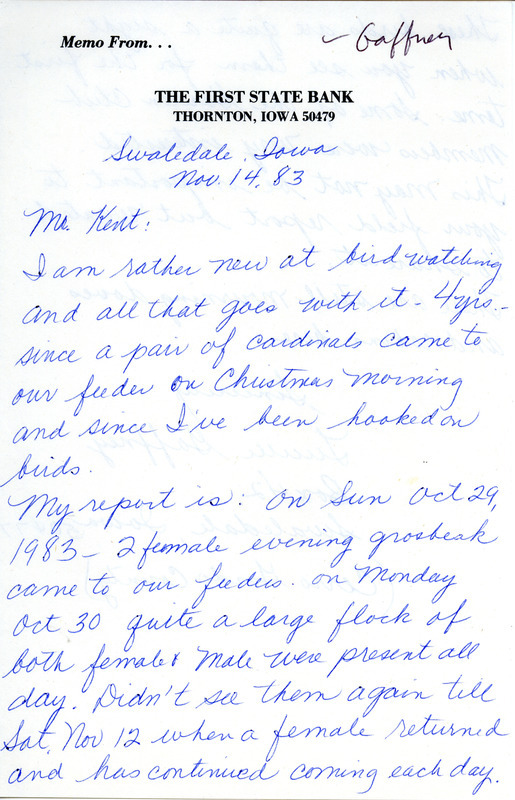 Memo From. . .
~ Gaffney
THE FIRST STATE BANK
THORNTON, IOWA 50479
Swaledale, Iowa
Nov. 14, 83
Mr. Kent:
I am rather new at bird watching
and all that goes with it - 4 yrs. -
since a pair of cardinals came to
our feeder on Christmas morning
and since I've been hooked on
birds.
My report is: On Sun Oct 29,
1983 - 2 female evening grosbeak
came to our feeders. on Monday
Oct 30 quite a large flock of
both female & male were present all
day. Didn't see them again till
Sat, Nov 12 when a female returned
and has continued coming each day.